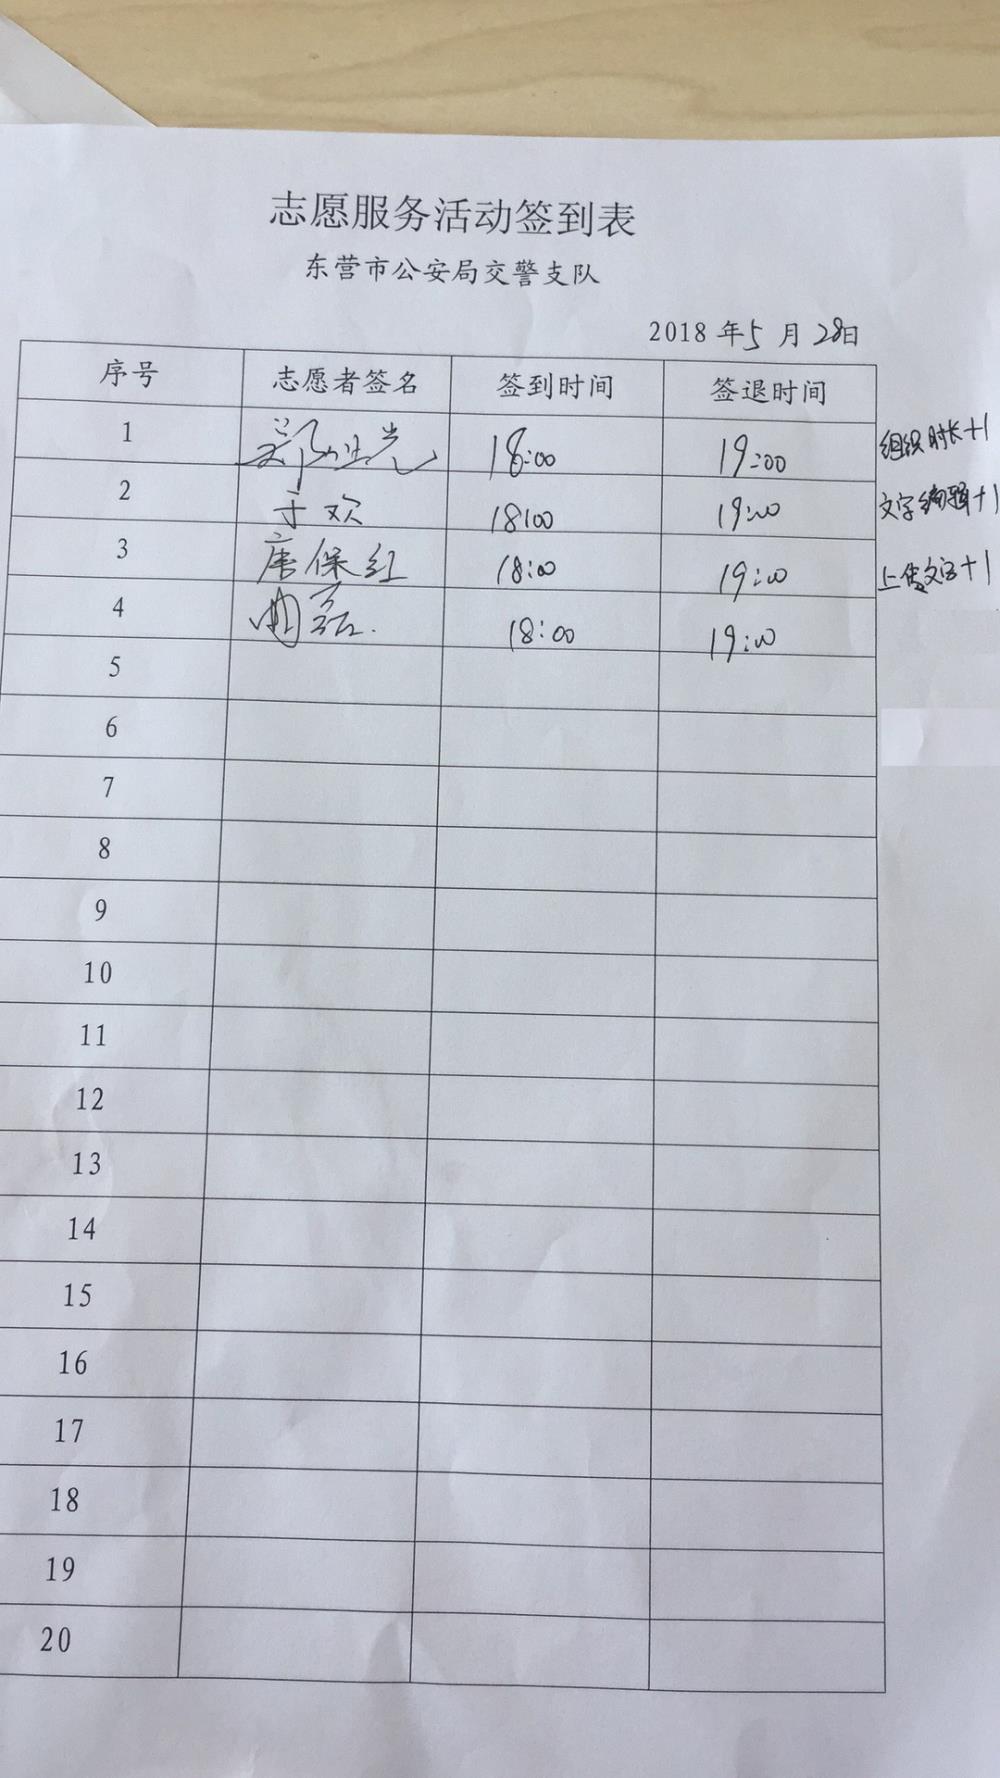 志愿服务活动签到表
东营市公安局交警支队
2018 年 5 月 28日
序号 志愿者签名 签到时间 签退时间
1 18:00 19:00 组织时长+1
2 于欢 18:00 19:00 文字编辑+1
3 唐保红 18:00 19:00 上传文字+1
4 曲磊 18:00 19:00
5
6
7
8
9
10
11
12
13
14
15
16
17
18
19
20